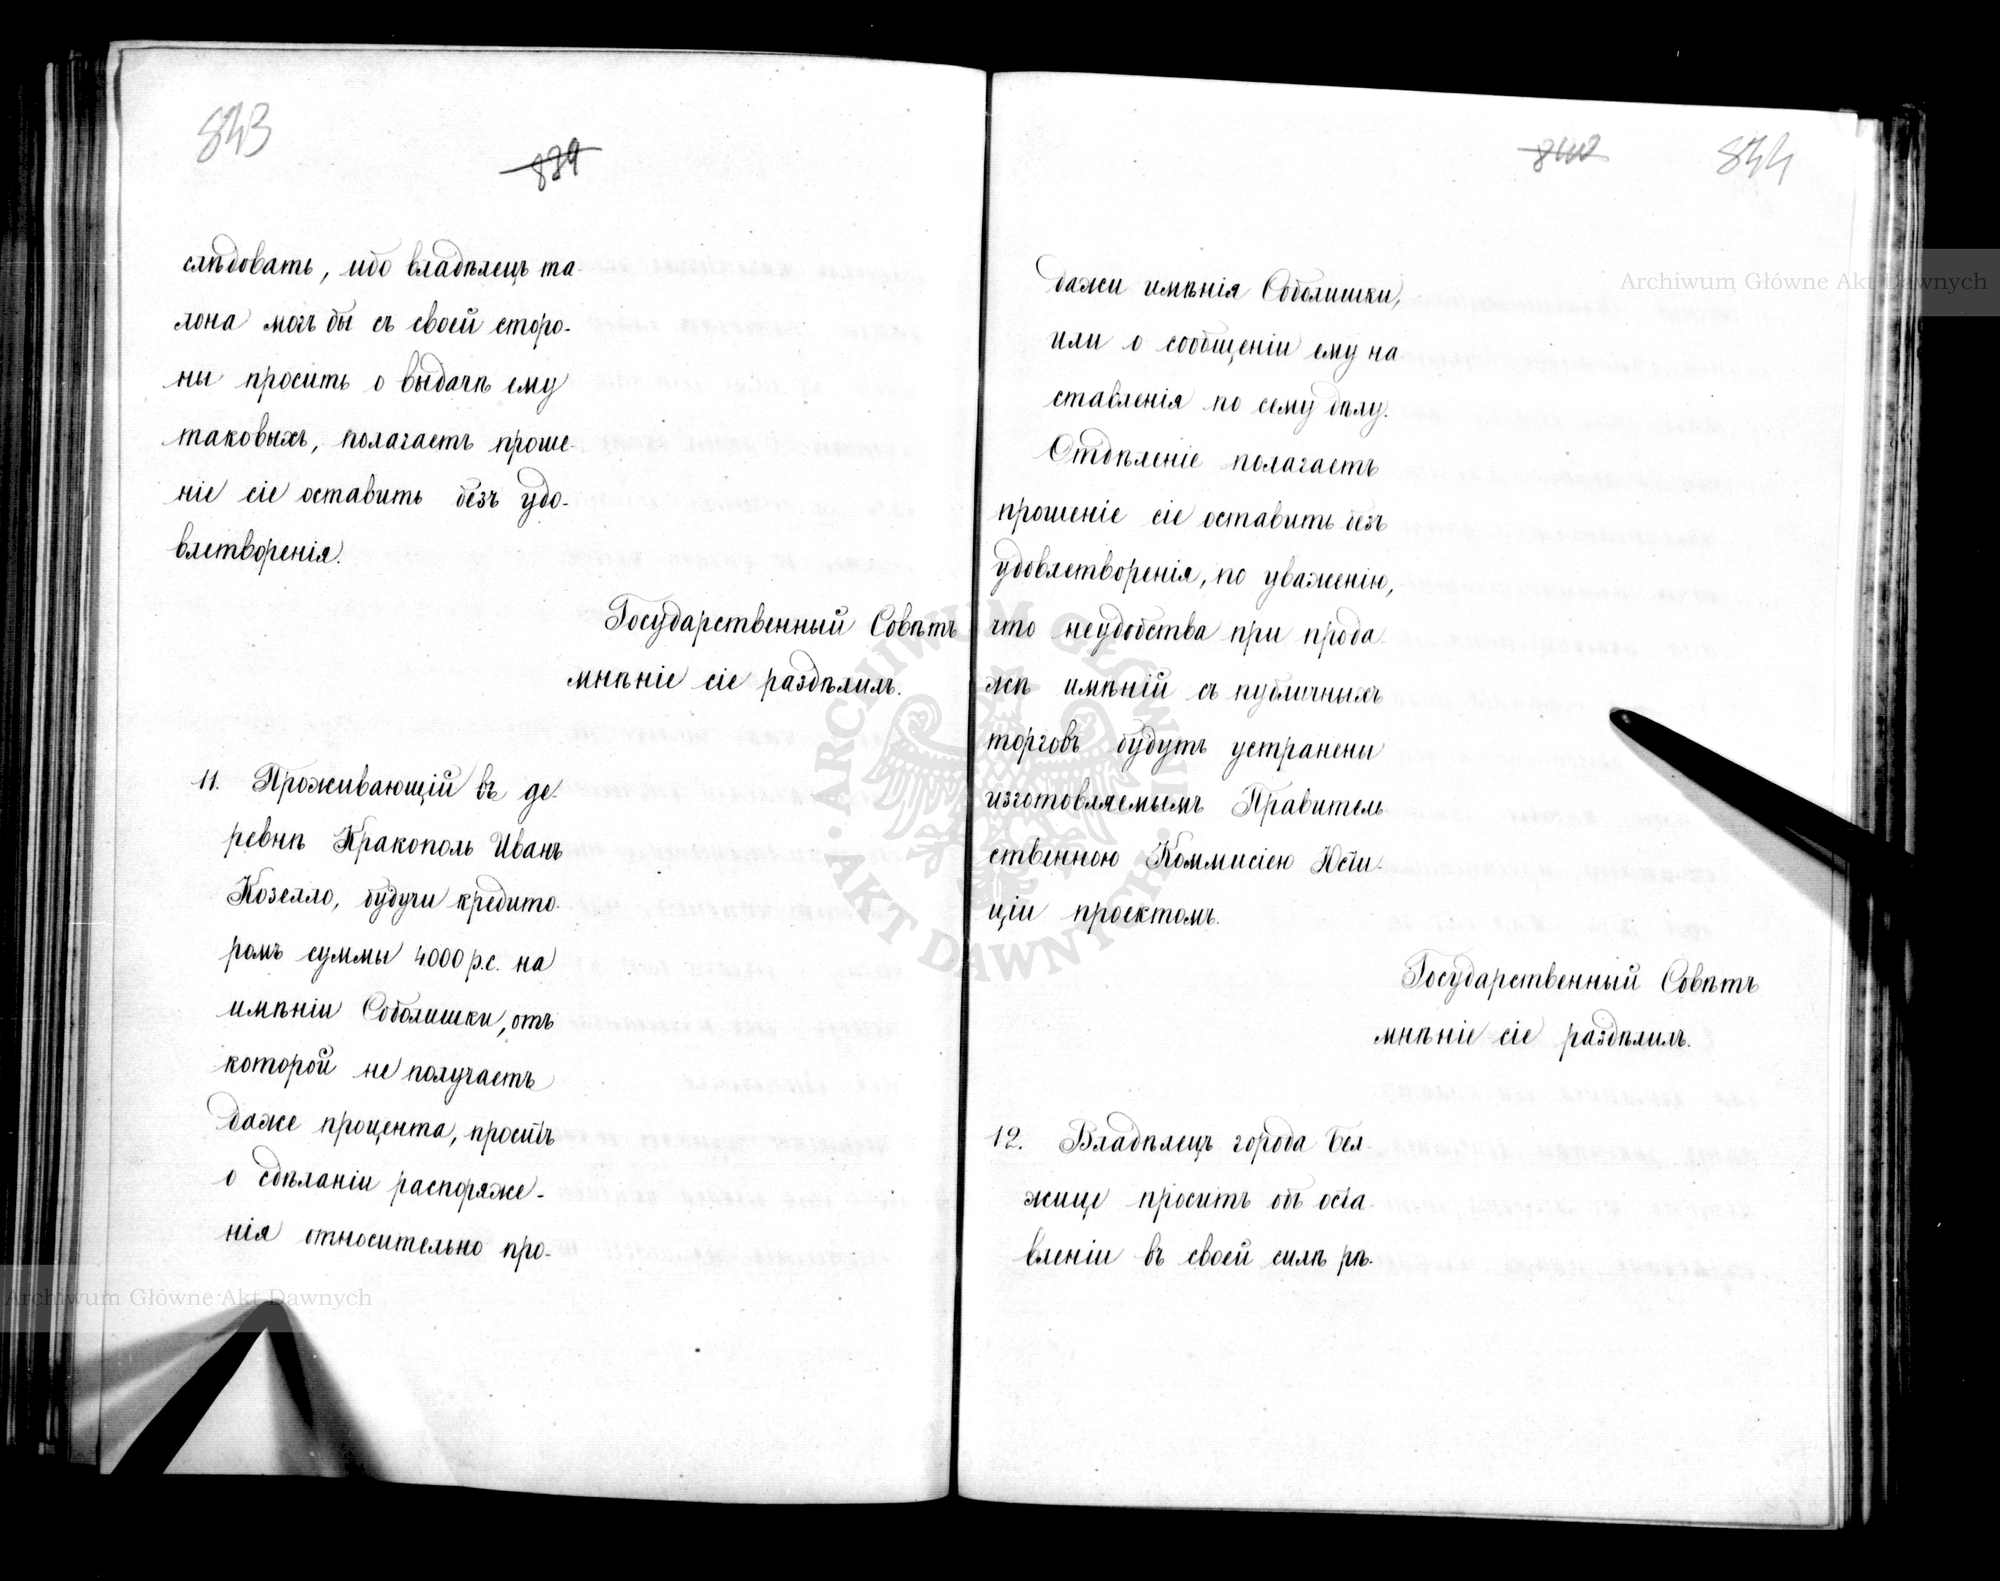 843
839
слѣдовать, ибо владѣлецъ та-
лона могъ бы съ своей сторо-
ны просить о выдачѣ ему
таковыхъ, полагаетъ проше-
ніе сіе оставить безъ удо-
влетворенія.
Государственный Совѣтъ
мнѣніе сіе раздѣлилъ.
11. Проживающій въ де-
ревнѣ Кракополь Иванъ
Козелло, будучи кредито-
ромъ суммы 4000 р.с. на
имѣніи Соболишки, отъ
которой не получаетъ
даже процента, проситъ
о сдѣланіи распоряже-
нія относительно про-
840 844
дажи имѣнія Соболишки,
или о сообщеніи ему на-
ставленія по сему дѣлу.
Отдѣленіе полагаетъ
прошеніе сіе оставить безъ
удовлетворенія, по уваженію,
что неудобства при прода-
жѣ имѣній съ публичныхъ
торговъ будутъ устранены
изготовляемымъ Правитель-
ственною Коммисіею Юсти-
ціи проектомъ.
Государственный Совѣтъ
мнѣніе сіе раздѣлилъ.
12. Владѣлецъ города Бел-
жице проситъ объ оста-
вленіи въ своей силѣ рѣ-
Archiwum Główne Akt Dawnych
Archiwum Główne Akt Dawnych
ARCHIWUM GŁÓWNE AKT DAWNYCH